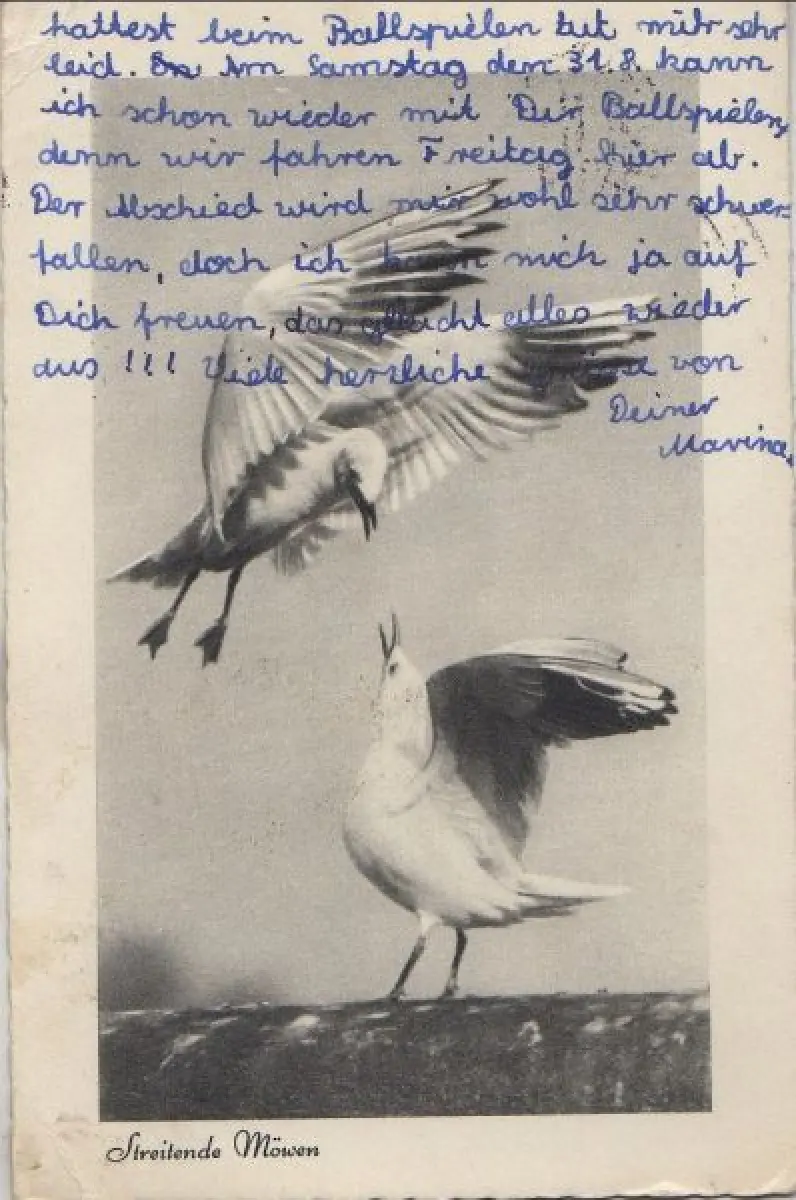 hattest beim Ballspielen tut mir sehr
leid. Am Samstag den 31.8. kann
ich schon wieder mit Dir Ballspielen,
denn wir fahren Freitag hier ab.
Der Abschied wird mir wohl sehr schwer=
fallen, doch ich kann mich ja auf
Dich freuen, das gleicht alles wieder
aus !!! Viele herzliche Grüße von
Deiner
Marina.
Streitende Möwen